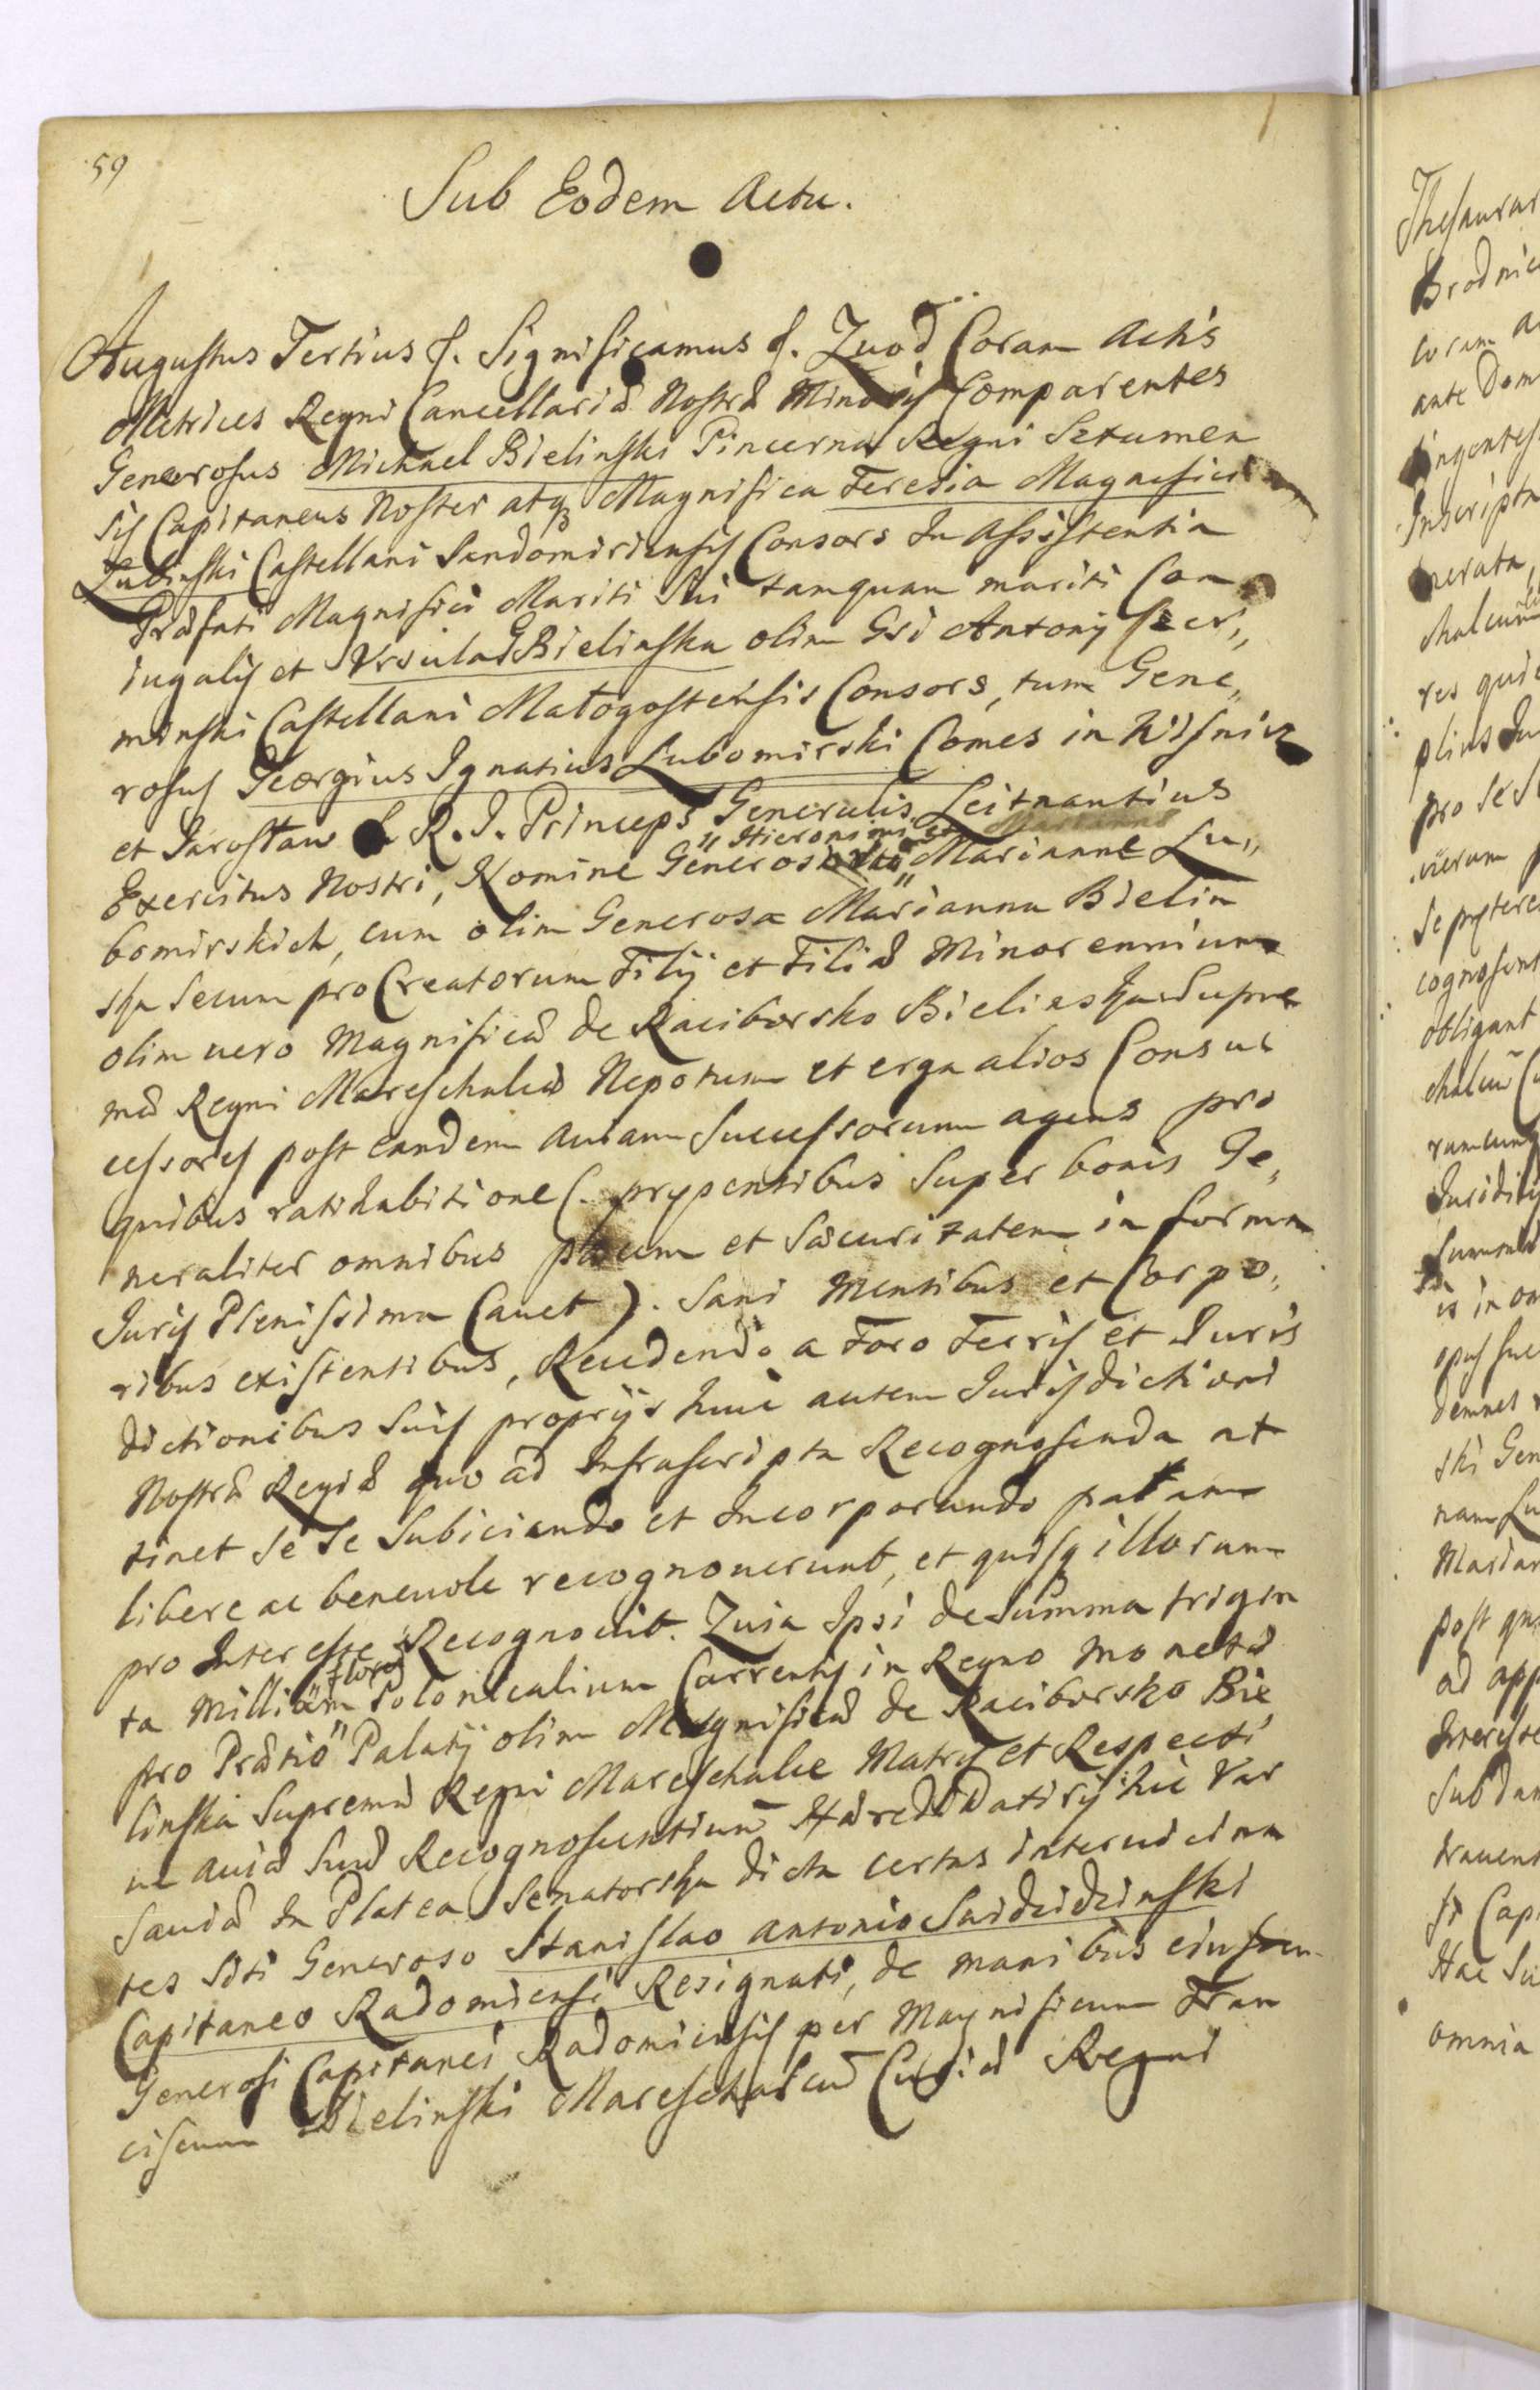 59
Sub Eodem Actu.
Augustus Tertius &. Significamus &. Quod Coram Actis
Metrices Regni Cancellariæ Nostræ Minoris Comparentes
Generosus Michael Bielinski Pincerna Regni Sztumen
sis Capitaneus Noster atq Magnifica Teresia Magnifici
Lubinski Castellani Sandomiriensis Consors In Assistentia
Præfati Magnifici Mariti sui tamquam mariti Con
iugalis et Ursula Bielinska olim Gsi Antonij
minski Castellani Małogostensis Consors, tum Gene„
rosus Georgius Ignatius Lubomirski Comes in Wisnicz
et Jarosław S. R. I. Princeps Generalis Leitnantius
Exercitus Nostri, Nomine Generosi Hieronimi et Marianne Lu„
bomirskich, cum olim Generosa Marianna Bielin
ska Secum proCreatorum Filij et Filiæ Minorennium
olim uero Magnificæ de Raciborsko Bielinska Supre
mæ Regni Mareschalcæ Nepotum et erga alios Consuc
cessores post eandem Auiam Successorum agens pro
quibus ratihabitione (. præsentibus Super bonis Ge„
neraliter omnibus et Sæcuritatem in forma
Juris Plenissima Cauet ). Sani Mentibus et Corpo„
ribus existentibus, Recedendo a Foro Terris et Juris
dictionibus Suis proprijs huic autem Jurisdictioni
Nostræ Regiæ quo ad Infrascripta Recognoscenda at
tinet Se Se Subiciendo et Incorporando palam
libere ac beneuole recognouerunt, et quisq illorum
pro Interesse Recognouit. Quia Ipsi de Summa trigin
ta Millium floro Polonicalium Currentis in Regno Monetæ
pro Prætio Palatij olim Magnificæ de Raciborsko Bie
linska Supremæ Regni Mareschalce Matris et Respecti
ue Auiæ Suæ Recognoscentium Hæreditarij hic Var
sauiæ In Platea Senatorska dicta certas interuicinita
tes siti Generoso Stanislao Antonio Swidzidzinski
Capitaneo Radomiensi Resignati, de manibus eiusdem
Generosi Capitanei Radomiensis per Magnificum Fran
ciscum Bielinski Mareschalcu Curiæ Regni
Brodnic
coram a
ante Dom
Inscripta
pro Se
cognoscunt
obligant
Summ
is in om
demnes
ski Gen
nam Lu
Marian
ad app
Interesse
si Cap
Hac Su
omnia